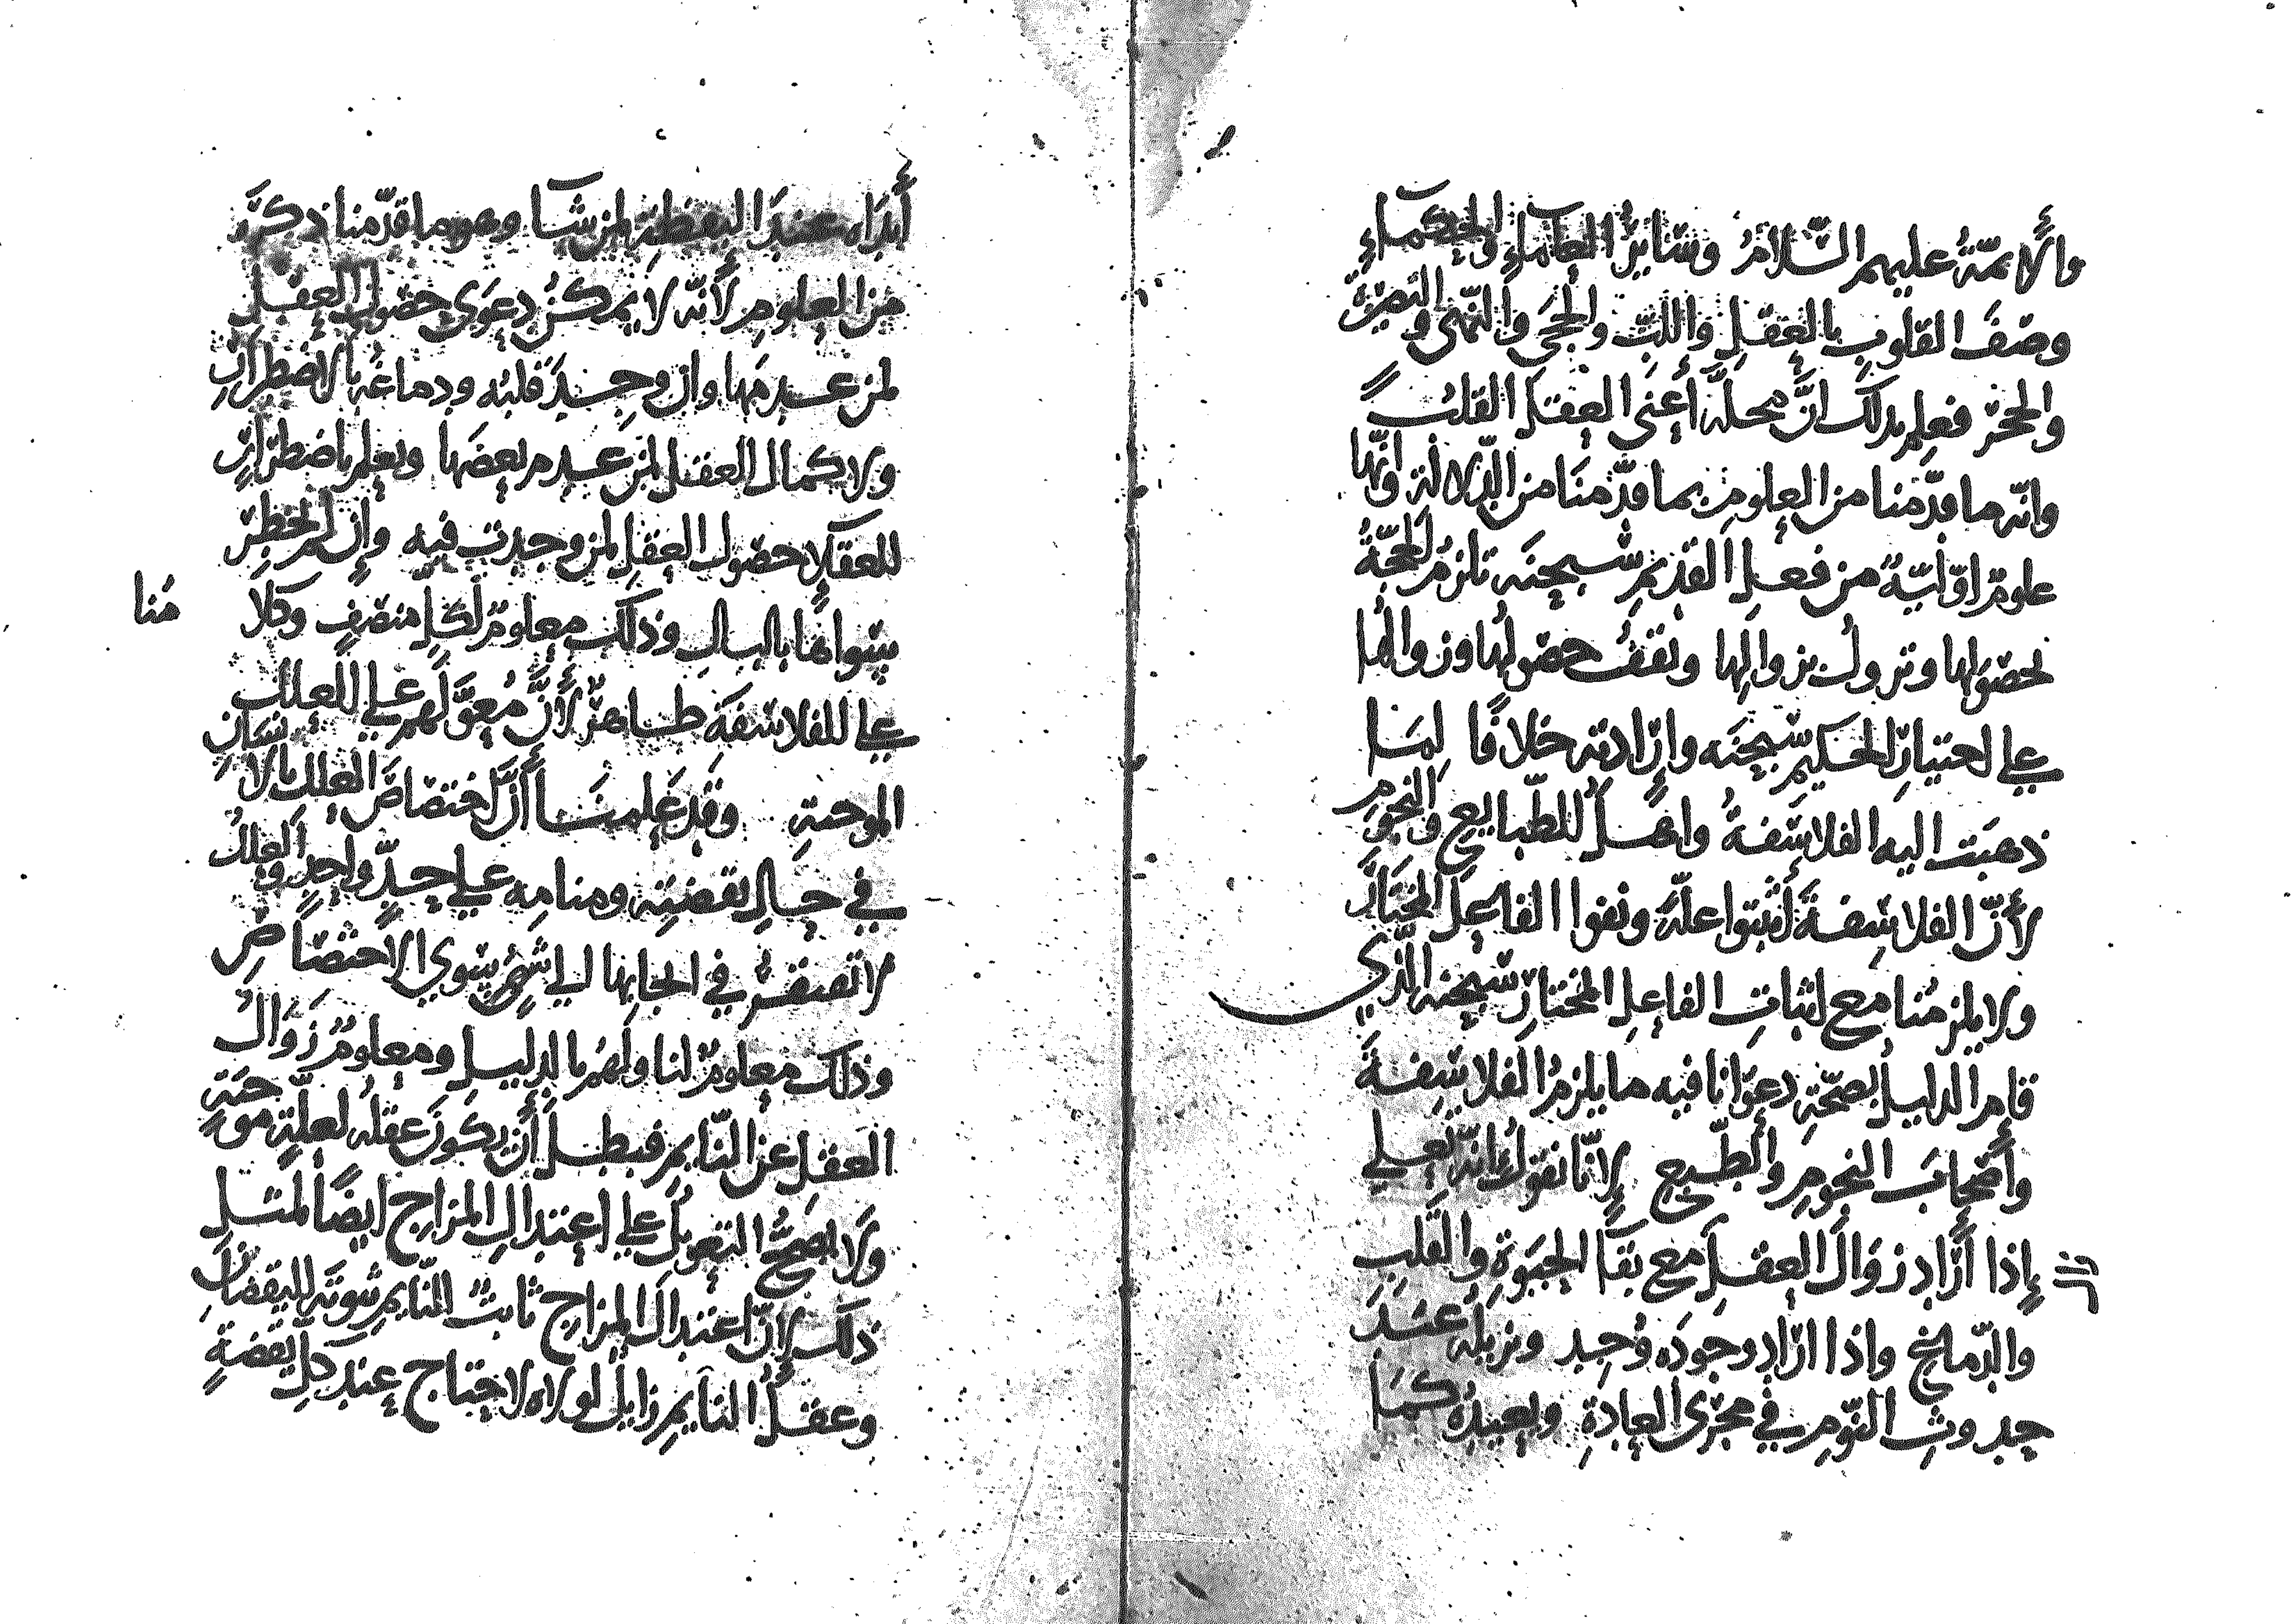 والأئمّةُ عليهم السّلامُ وسَايرُ العلمآءِ والحكمآءِ
وصفَ القلوبِ بالعقلِ واللبِّ والحِجَى والنُّهَى والتميزِ
والحجرِ فعلم بذلك انَّ محلَّه أعني العقلَ القلبُ
وانّه ما قدّمنا من العلومِ بما قدّمنَا من الدّلالة وانّها
علومٌ اوّليّةٌ من فعلِ القديمِ سبحنَه تلزمُ الحجّةُ
بحصولها وتزولُ بزوالِها وتقفُ حصولُها وزوالُها
على اختيارِ الحكيم سبحنَه وإرادته خلافًا لِمَا
ذهبَت اليه الفلاسفةُ واهلُ الطّبايعِ والنجومِ
لأنّ الفلاسِفةَ أثبتوا علّةً ونفوا الفاعِلَ المختارَ
ولا يلزمُنا مع اثباتِ الفاعِلِ المختارِ سبحنه الذّي
قامَ الدليلُ بصحّةِ دعوَانا فيه ما يلزمُ الفلاسِفةَ
وأصحابَ النجومِ والطّبعِ لإنّا نقولُ إنّه تعلى
إذا أرَاد زوَالَ العقلِ مع بقآ الحيوةِ والقَلبِ
والدّماغ واذا ارادَ وجودَه وُجِد ويزيلُه عندَ
حدوثِ النّومِ في مجرَى العادةِ ويعيدُه كمَا
أبدَاه عندَ اليقظةِ لمن شآ وهو ما قدّمنا ذكرَه
من العلومِ لأنّه لا يمكنُ دعوَى حصولِ العقلِ
لمن عدِمَها وان وُجِدَ قلبُه ودماغُه بالاضطرارِ
ولا كمالَ العقلِ لمن عدم بعضَها ويعلم باضطرارٍ
للعقلآ حصولُ العقلِ لمن وجدت فيه وإن لم يخطِر
سِوَاها بالبالِ وذلك معلومٌ لكلِ منصفٍ وكلا مُنا
على الفلاسفةِ ظاهرٌ لأنَّ مُعوَّلَهم على العللِ
الموجبةِ وقد علمنَا أنَّ اختصاصَ العللِ بالانسَانِ
في حالِ يقضتِه ومنامِه على حدٍّ واحدٍ والعللُ
لا تفتقرُ في ايجابِها الى شيءٍ سوى الاختصَاصِ
وذلك معلومٌ لنا ولهم بالدليلِ ومعلومٌ زوَالُ
العقلِ عن النّايمِ فبطلَ أن يكونَ عقلُه لعلّةٍ موجبةٍ
ولا يصحُّ التعويلُ على اعتدالِ المزاجِ ايضًا لمثلِ
ذلك لإنّ اعتدالَ المزاجِ ثابتٌ للنّايمِ ثبوتَه لليقضانِ
وعقلُ النآيمِ زايلٌ لولاه لاحتاج عند كلِ يقضةٍ